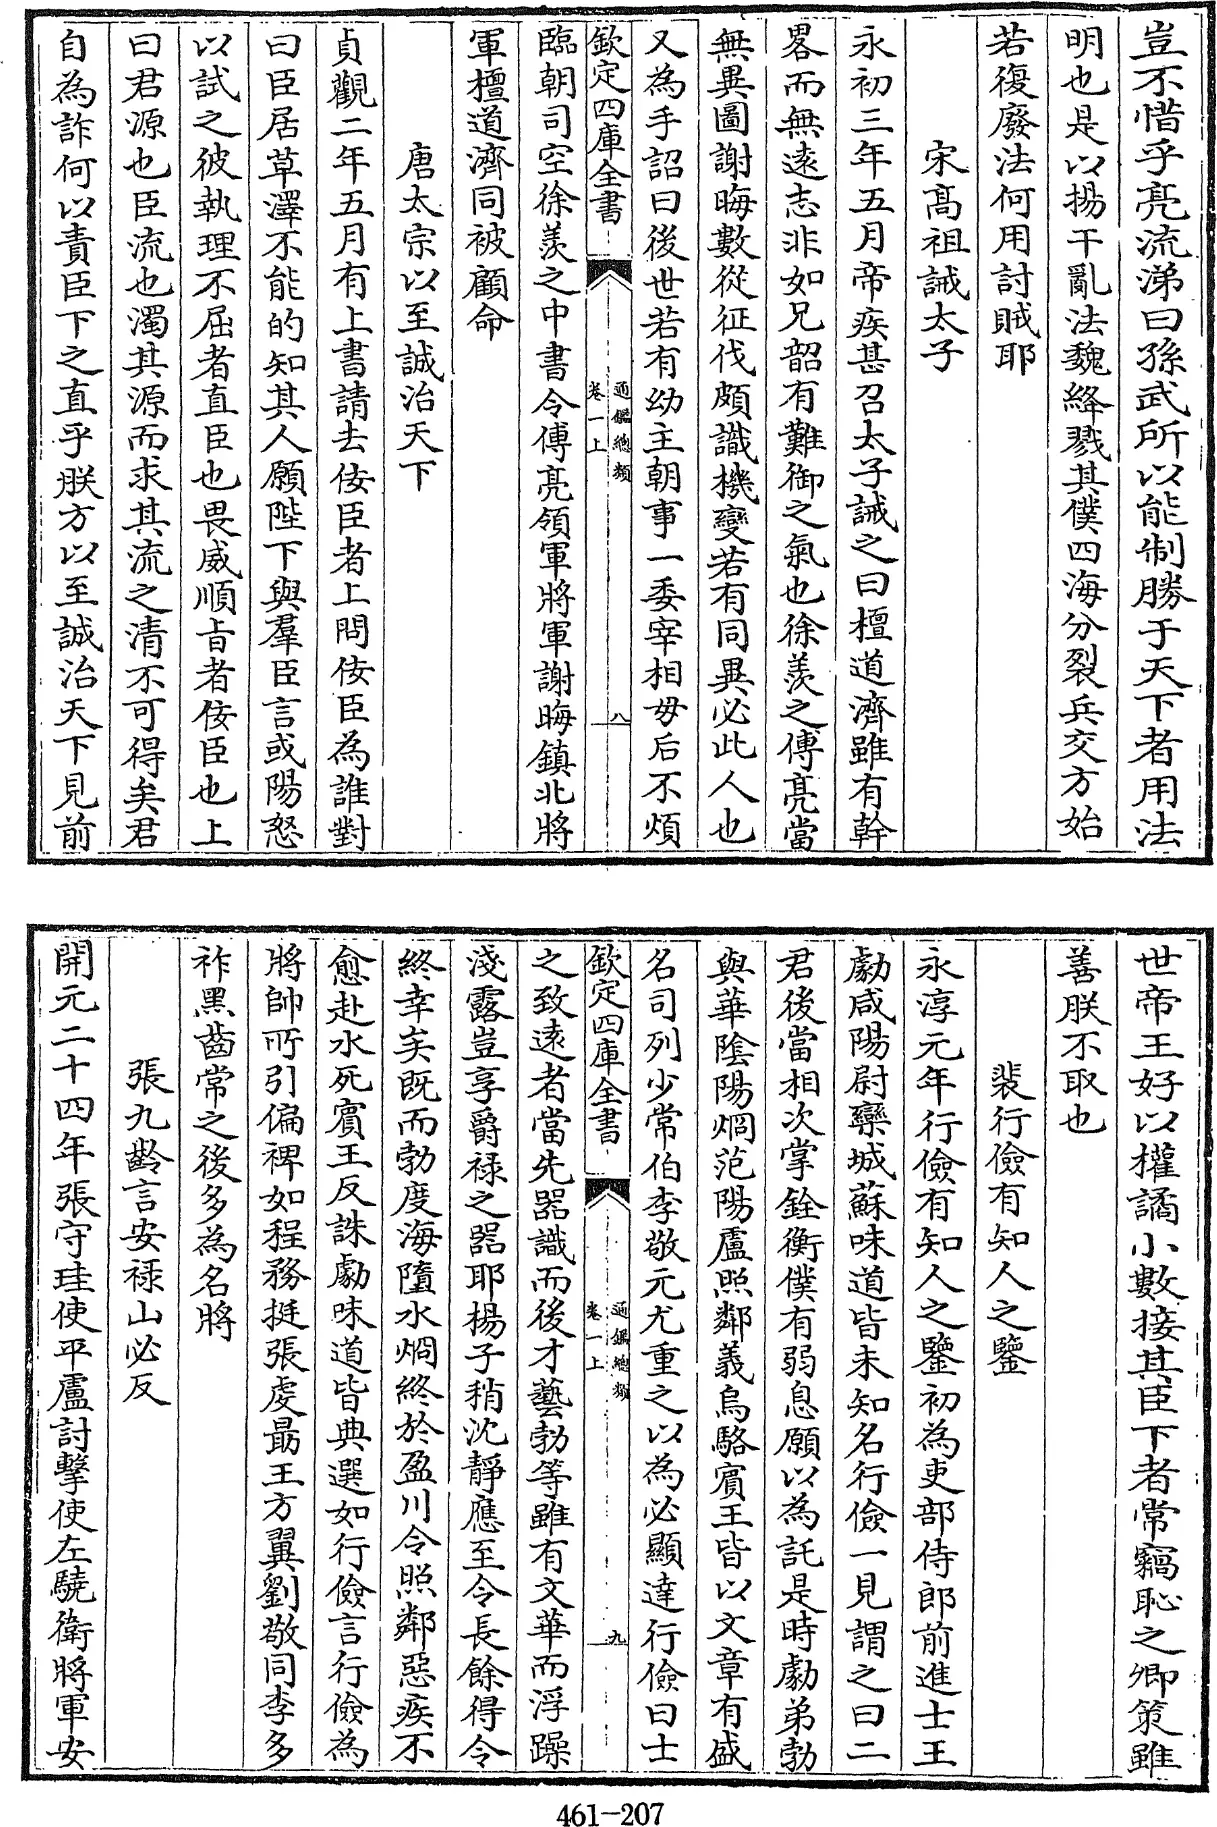 豈不惜乎亮流涕曰孫武所以能制勝于天下者用法
明也是以揚干亂法魏絳戮其僕四海分裂兵交方始
若復廢法何用討賊耶
宋髙祖誡太子
永初三年五月帝疾甚召太子誡之曰檀道濟雖有幹
畧而無遠志非如兄韶有難御之氣也徐羨之傅亮當
無異圖謝晦數從征伐頗識機變若有同異必此人也
又為手詔曰後世若有幼主朝事一委宰相毋后不煩
欽定四庫全書
通鑑總類
卷一上
八
臨朝司空徐羨之中書令傅亮領軍將軍謝晦鎮北將
軍檀道濟同被顧命
唐太宗以至誠治天下
貞觀二年五月有上書請去佞臣者上問佞臣為誰對
曰臣居草澤不能的知其人願陛下與羣臣言或陽怒
以試之彼執理不屈者直臣也畏威順㫖者佞臣也上
曰君源也臣流也濁其源而求其流之清不可得矣君
自為詐何以責臣下之直乎朕方以至誠治天下見前
世帝王好以權譎小數接其臣下者常竊恥之卿策雖
善朕不取也
裴行儉有知人之鑒
永淳元年行儉有知人之鑒初為吏部侍郎前進士王
勮咸陽尉欒城蘇味道皆未知名行儉一見謂之曰二
君後當相次掌銓衡僕有弱息願以為託是時勮弟勃
與華陰陽烱范陽盧照鄰義烏駱賓王皆以文章有盛
名司列少常伯李敬元尤重之以為必顯達行儉曰士
欽定四庫全書
通鑑總類
卷一上
九
之致遠者當先器識而後才藝勃等雖有文華而浮躁
淺露豈享爵禄之器耶楊子稍沈靜應至令長餘得令
終幸矣既而勃度海墮水烱終於盈川令照鄰惡疾不
愈赴水死賓王反誅勮味道皆典選如行儉言行儉為
將帥所引偏裨如程務挺張虔朂王方翼劉敬同李多
祚黑齒常之後多為名將
張九齡言安禄山必反
開元二十四年張守珪使平盧討擊使左驍衛將軍安
461-207